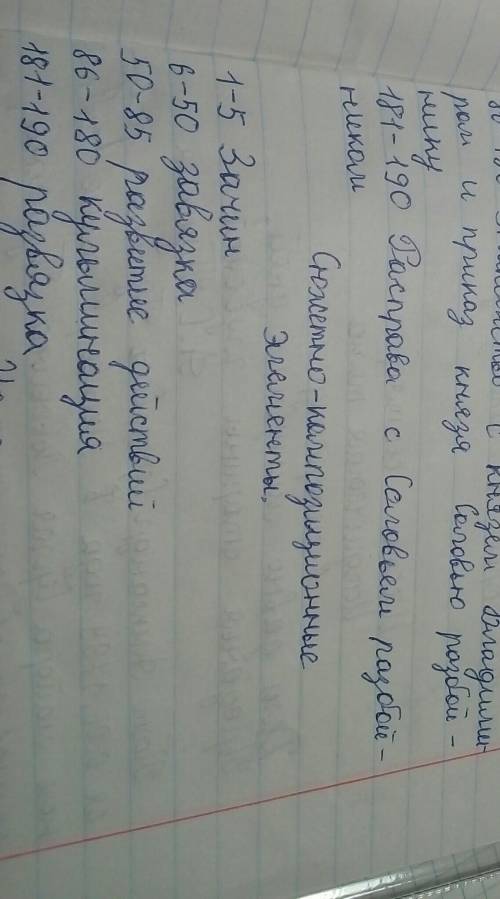 с князем Владими-
ром и приказ князя Соловью разбой-
нику
181-190 Расправа с Соловьем разбой-
никам
Сюжетно-композиционные
элементы,
1-5 Зачин
6-50 завязка
50-85 развитие действий
86-180 кульминация
181-190 развязка